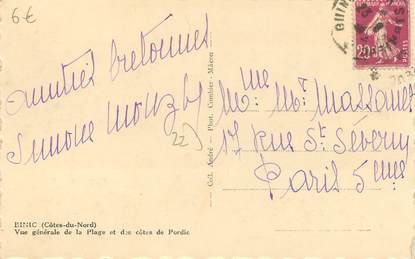 6€
amitiés bretonnes
Simone
22
Mme Mr Massonet
17 Rue St Séverin
Paris 5ème
Coll. André - Phot. Combier - Mâcon
BINIC (Côtes-du-Nord)
Vue générale de la Plage et des côtes de Pordic